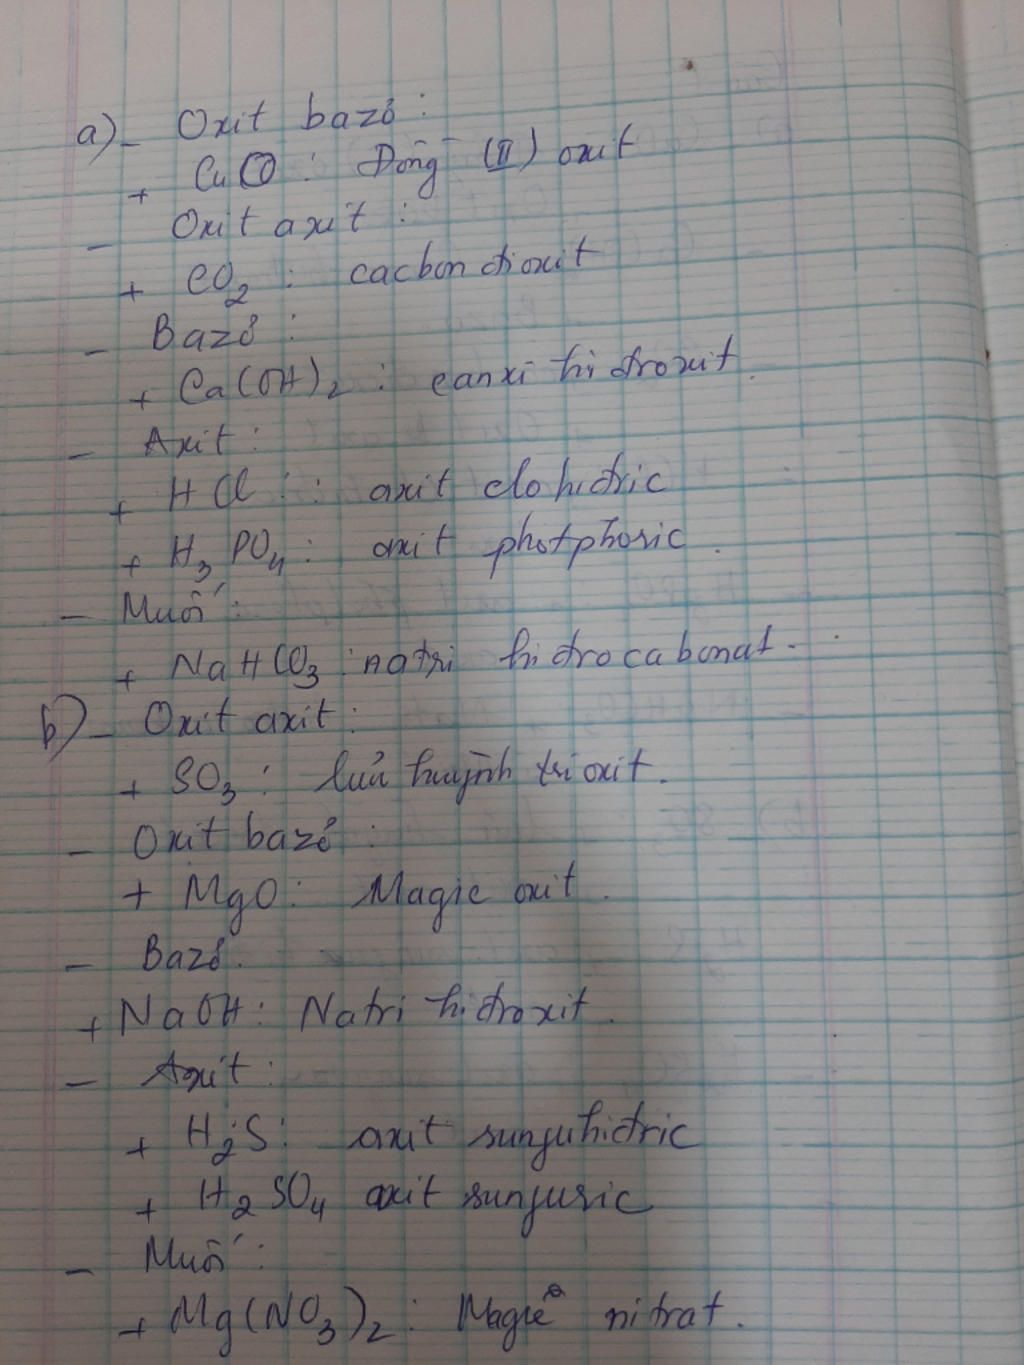 a) - Oxit bazơ :
+ CuO : Đồng (II) oxit
- Oxit axit :
+ CO2 : cacbon đioxit
- Bazơ :
+ Ca(OH)2 : canxi hiđroxit.
- Axit :
+ HCl : axit clohiđric
+ H3PO4 : axit photphoric.
- Muối :
+ NaHCO3 : natri hiđrocabonat.
b) - Oxit axit :
+ SO3 : lưu huỳnh trioxit.
- Oxit bazơ :
+ MgO : Magie oxit.
- Bazơ.
+ NaOH : Natri hiđroxit.
- Axit :
+ H2S : axit sunfuhiđric
+ H2SO4 axit sunfuric
- Muối :
+ Mg(NO3)2 : Magie nitrat.